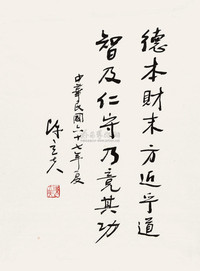 德本財末方近乎道
智及仁守乃竟其功
中華民國六十七年夏
陳立夫